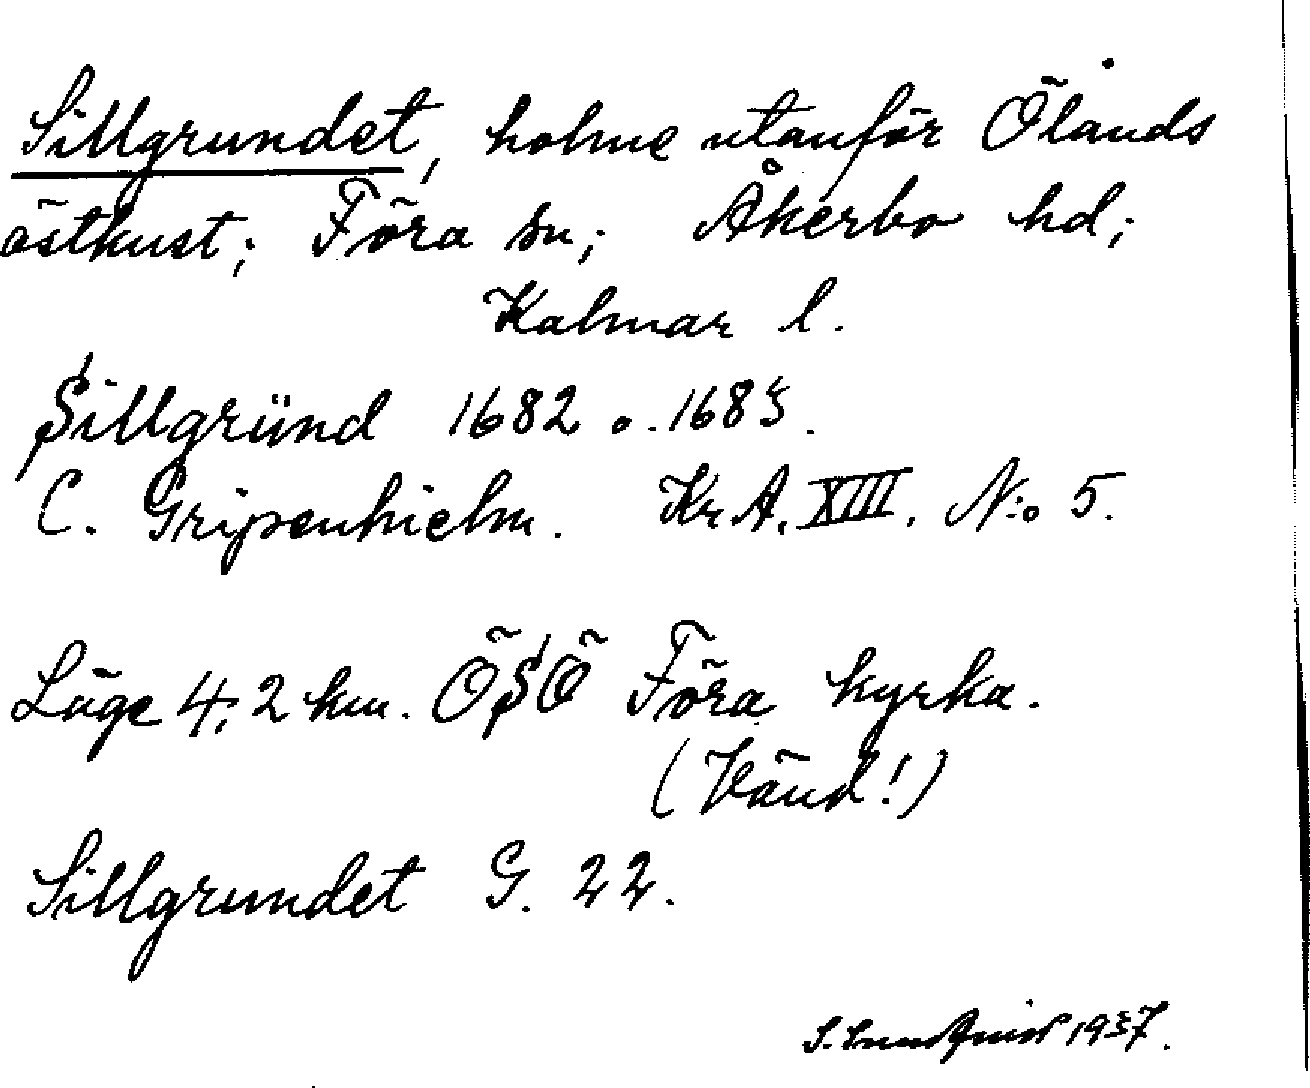 Sillgrundet, holme utanför Ölands
östkust; Föra sn; Åkerbo hd;
Kalmar l.
Sillgründ 1682 o. 1685.
C. Gripenhielm. Kr. A. XIII. N:o 5.
Läge 4,2 km. ÖSÖ Föra kyrka.
(Vänd!)
Sillgrundet G. 22.
S. Lundquist 1937.